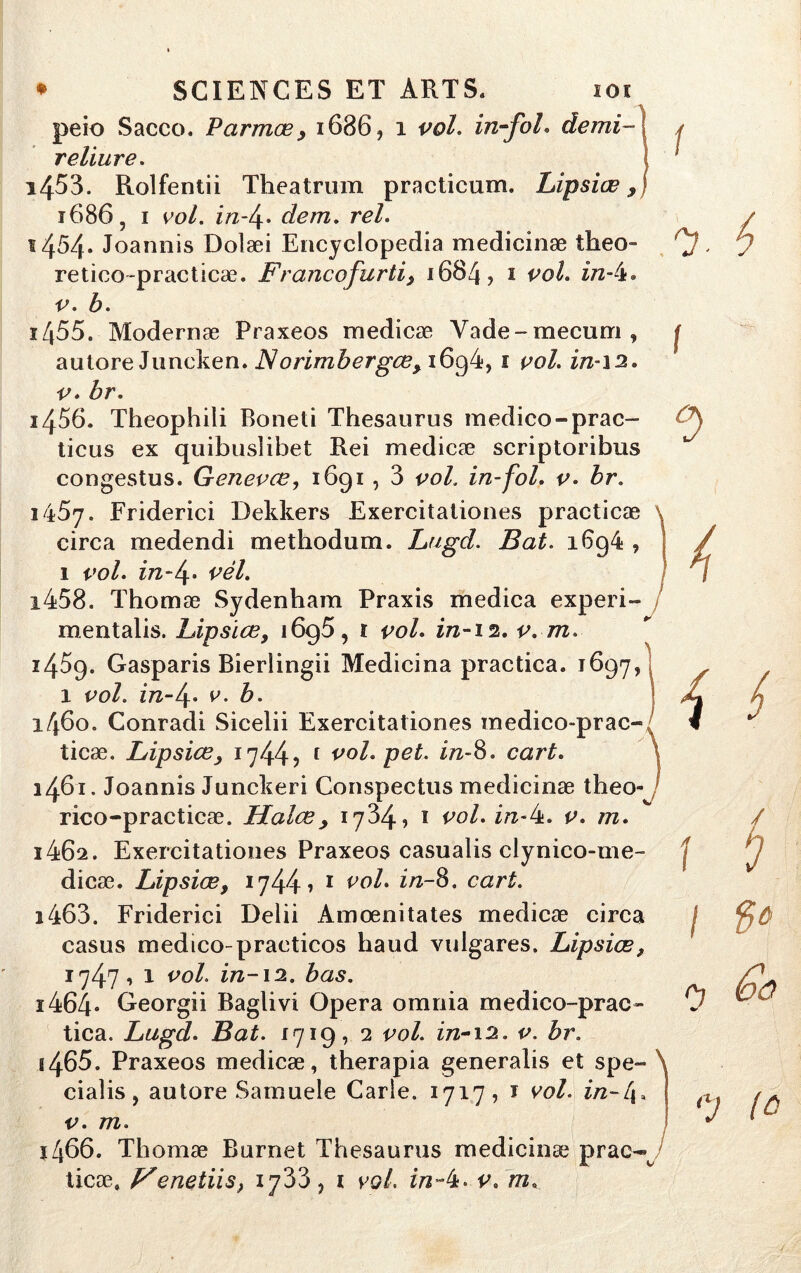 SCIENCES ET ARTS. 101
peio Sacco. Parmœ, 1686, 1 vol. in-fol. demi-
reliure. 1
1453. Rolfentii Theatrum practicum. Lipsiœ,
1686, 1 vol. in-4. dem. rel.
1454. Joannis Dolæi Encyclopedia medicinæ theo- 2. 5
retico-practicæ. Francofurti, 1684, 1 vol. in-4.
v. b.
1455. Modernæ Praxeos medicæ Vade-mecum, 1
autore Juncken. Norimbergœ, 1694, 1 vol. in-12.
v. br.
1456. Theophili Boneti Thesaurus medico-prac- 9
ticus ex quibuslibet Rei medicæ scriptoribus
congestus. Genevœ, 1691, 3 vol. in-fol. v. br.
1457. Friderici Dekkers Exercitationes practicæ
circa medendi methodum. Lugd. Bat. 1694, 4
1 vol. in-4. vél.
1458. Thomæ Sydenham Praxis medica experi-
mentalis. Lipsiœ, 1695, 1 vol. in-12. v. m.
1459. Gasparis Bierlingii Medicina practica. 1697,
1 vol. in-4. v. b. 4 5
1460. Conradi Sicelii Exercitationes medico-prac-
ticæ. Lipsiœ, 1744, 1 vol. pet. in-8. cart.
1461. Joannis Junckeri Conspectus medicinæ theo-
rico-practicæ. Halœ, 1734, 1 vol. in-4. v. m.
1462. Exercitationes Praxeos casualis clynico-me- 1 5
dicæ. Lipsiœ, 1744, 1 vol. in-8. cart.
1463. Friderici Delii Amœnitates medicæ circa 1 80
casus medico-practicos haud vulgares. Lipsiœ,
1747, 1 vol. in-12. bas.
1464. Georgii Baglivi Opera omnia medico-prac- 2 60
tica. Lugd. Bat. 1719, 2 vol. in-12. v. br.
1465. Praxeos medicæ, therapia generalis et spe-
cialis, autore Samuele Carle. 1717, 1 vol. in-4. 2 10
v. m.
1466. Thomæ Burnet Thesaurus medicinæ prac-
ticæ. Venetiis, 1733, 1 vol. in-4. v. m.